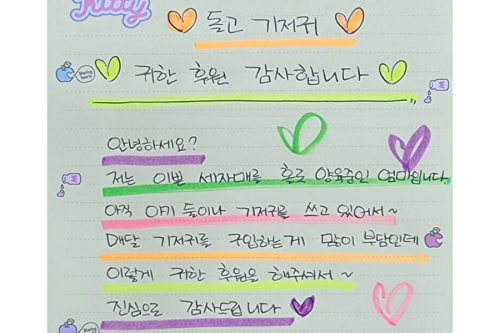 Kitty
돌고 기저귀
귀한 후원 감사합니다
안녕하세요?
저는 이쁜 세자매를 홀로 양육중인 엄마입니다
아직 아기 둘이나 기저귀를 쓰고 있어서~
매달 기저귀를 구입하는게 많이 부담인데
이렇게 귀한 후원을 해주셔서~
진심으로 감사드립니다